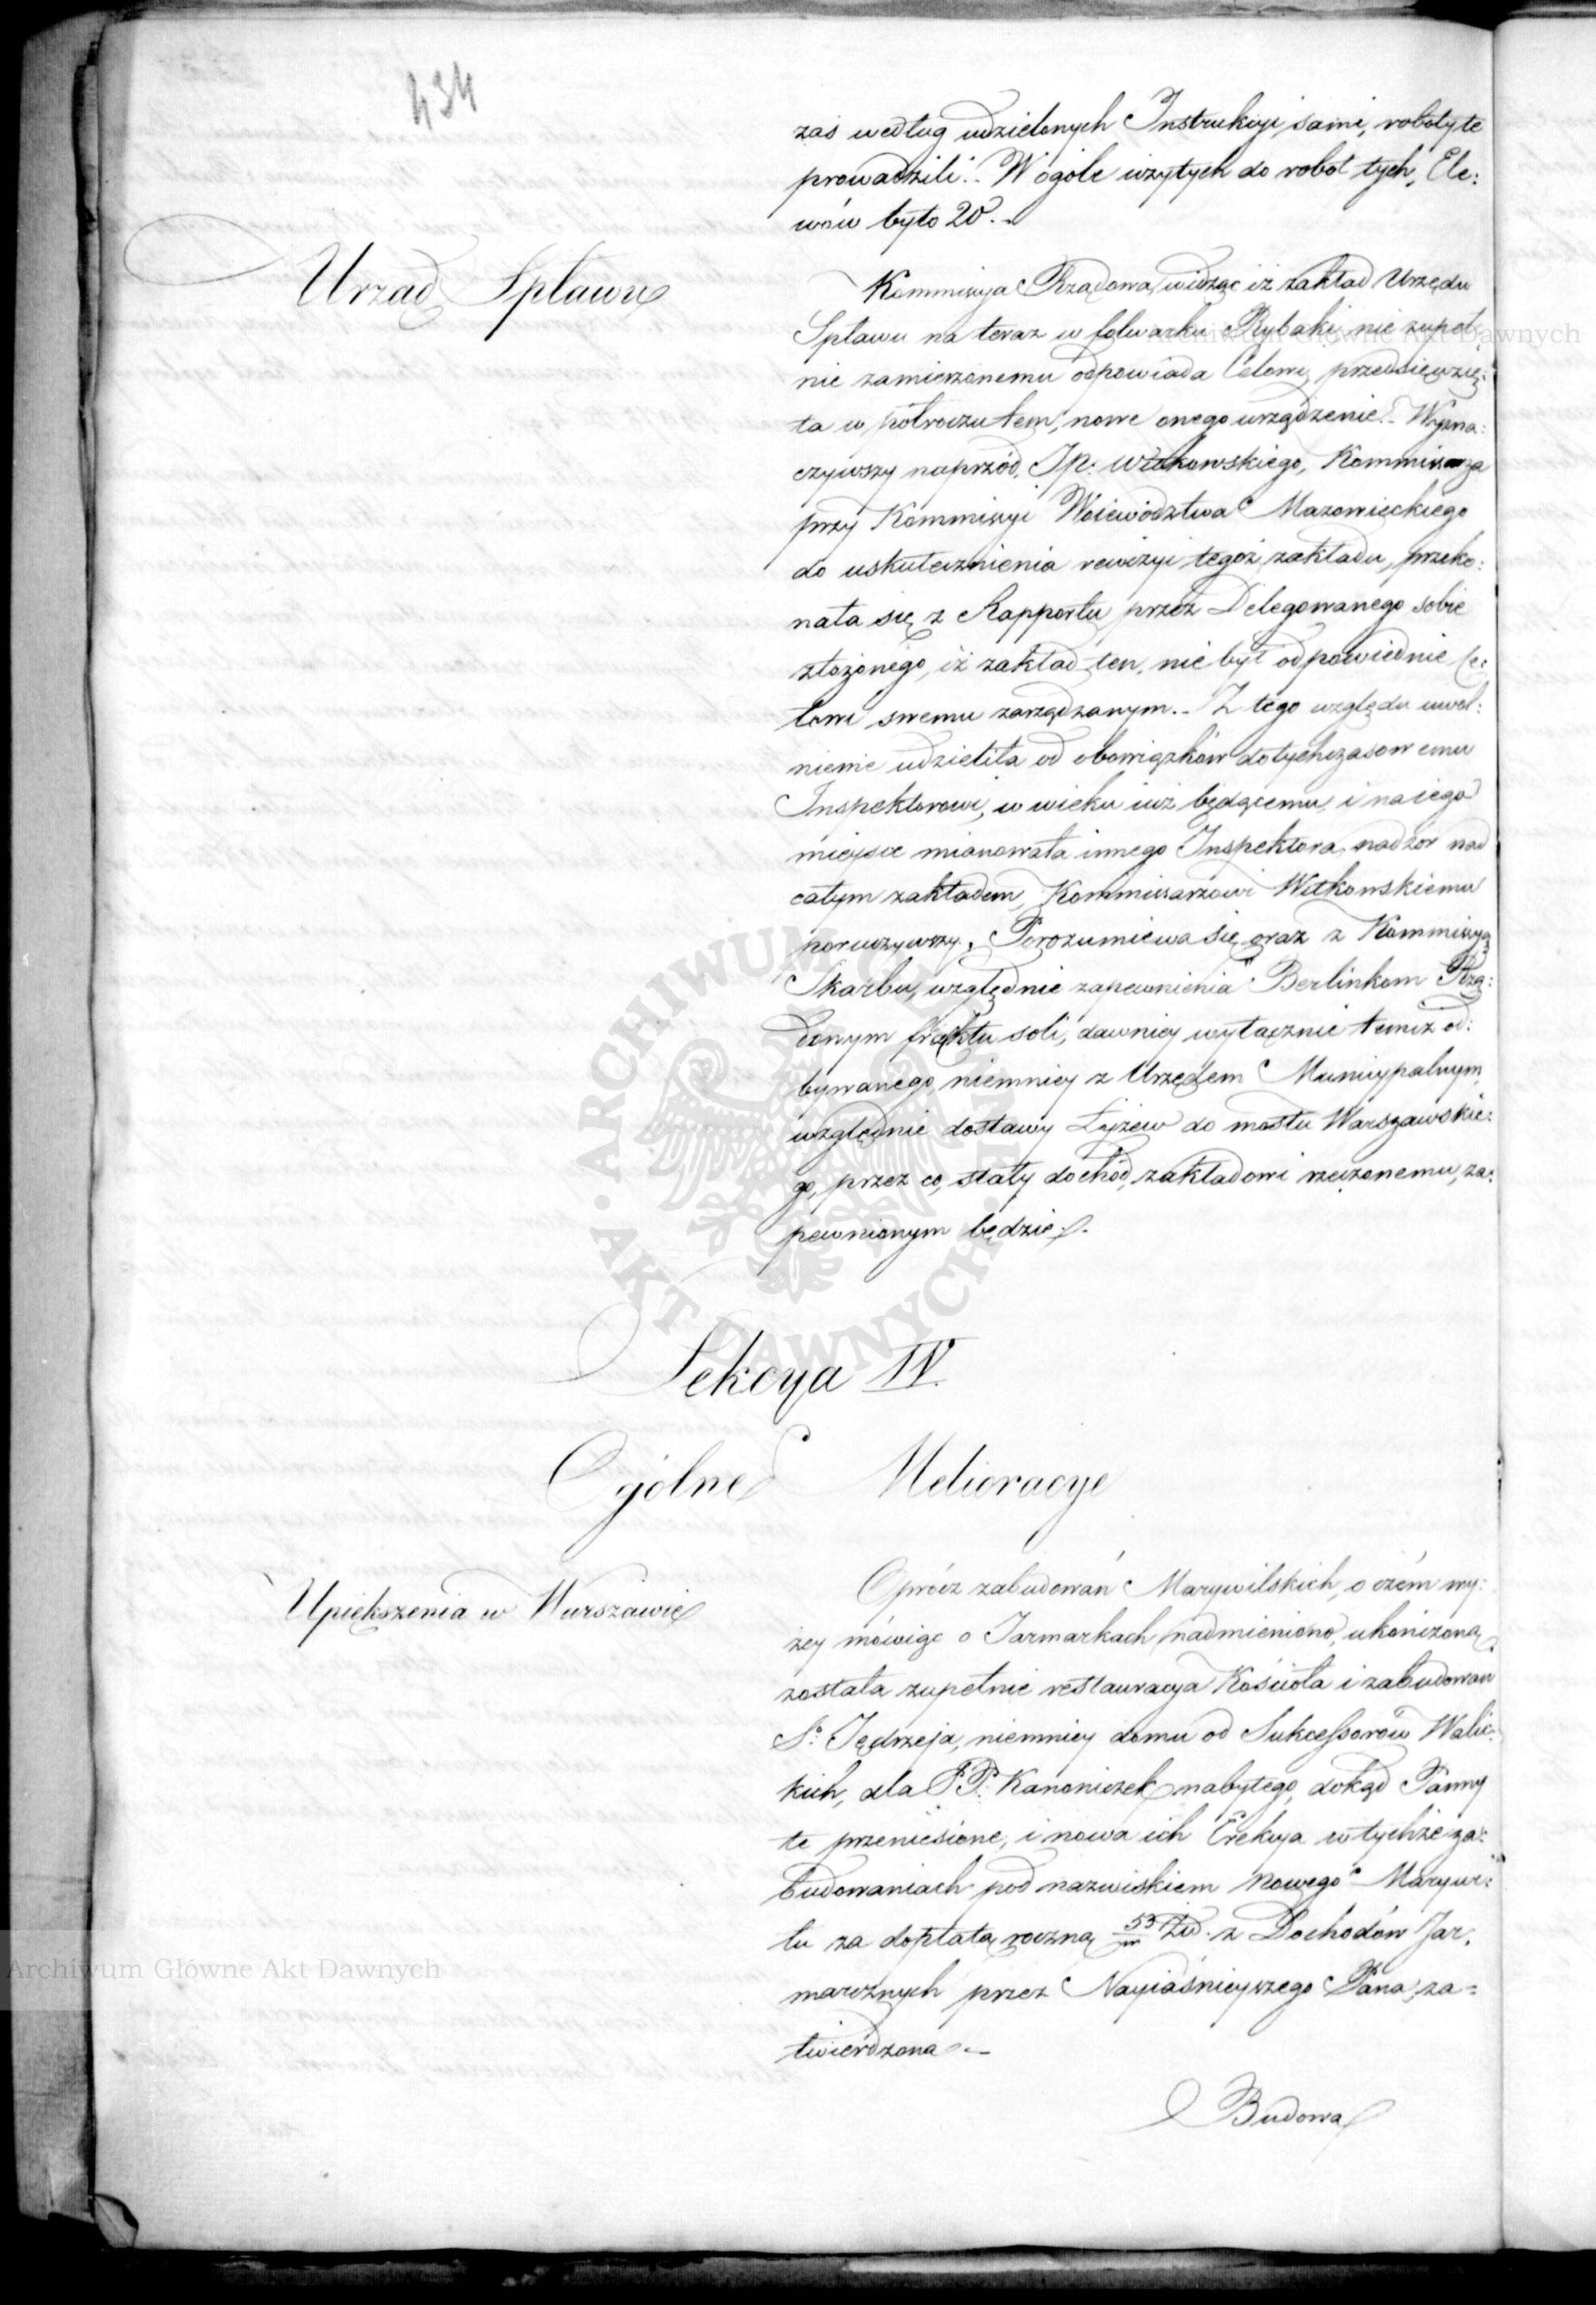 434
zaś według udzielonych Instrukcyi, sami, roboty te
prowadzili.- W ogóle użytych do robot tych, Ele:
wów było 20.-
Urząd Spławu
Kommissya Rządowa widząc iż zakład Urzędu
Spławu na teraz w folwarku Rybaki, nie zupeł:
nie zamierzonemu odpowiada Celowi, przedsięwzię:
ta w półroczu tem, nowe onego urządzenie.- Wyzna:
czywszy naprzód, JP. Witkowskiego, Kommissarza
przy Kommissyi Woiewództwa Mazowieckiego
do uskutecznienia rewizyi tegoż zakładu, przeko:
nała się z Rapportu przez Delegowanego sobie
złożonego, iż zakład ten, nie był odpowiednie Ce:
lowi swemu zarządzanym.- Z tego względu uwol:
nienie udzieliła od obowiązków dotychczasowemu
Inspektorowi, w wieku iuż będącemu, i na iego
mieysce mianowała innego Inspektora, nadzór nad
całym zakładem, Kommissarzowi Witkowskiemu
poruczywszy. Porozumiewa się oraz z Kommissyą
Skarbu, względnie zapewnienia Berlinkom Rzą:
dowym frachtu soli, dawniey wyłącznie temiż od:
bywanego, niemniey z Urzędem Municypalnym,
względnie dostawy Łyżew do mostu Warszawskie:
go, przez co, stały dochód, zakładowi rzeczonemu, za:
pewnionym będzie.
Sekcya IV.
Ogólne Melioracye
Upiększenia w Warszawie
Oprócz zabudowań Marywilskich, o czém wy:
żey mówiąc o Jarmarkach nadmieniono, ukończoną
została zupełnie restauracya Kościoła i zabudowań
Sº Jędrzeja, niemniey domu od Sukcessorów Walic:
kich, dla PP. Kanoniczek nabytego, dokąd Panny
te przeniesione, i nowa ich Erekcya w tychże za:
budowaniach pod nazwiskiem Nowego Marywi:
lu za dopłatą roczną 53/m Złł. z Dochodów Jar:
marcznych przez Nayiaśnieyszego Pana, za=
twierdzona.-
Budowa
Archiwum Główne Akt Dawnych
Archiwum Główne Akt Dawnych